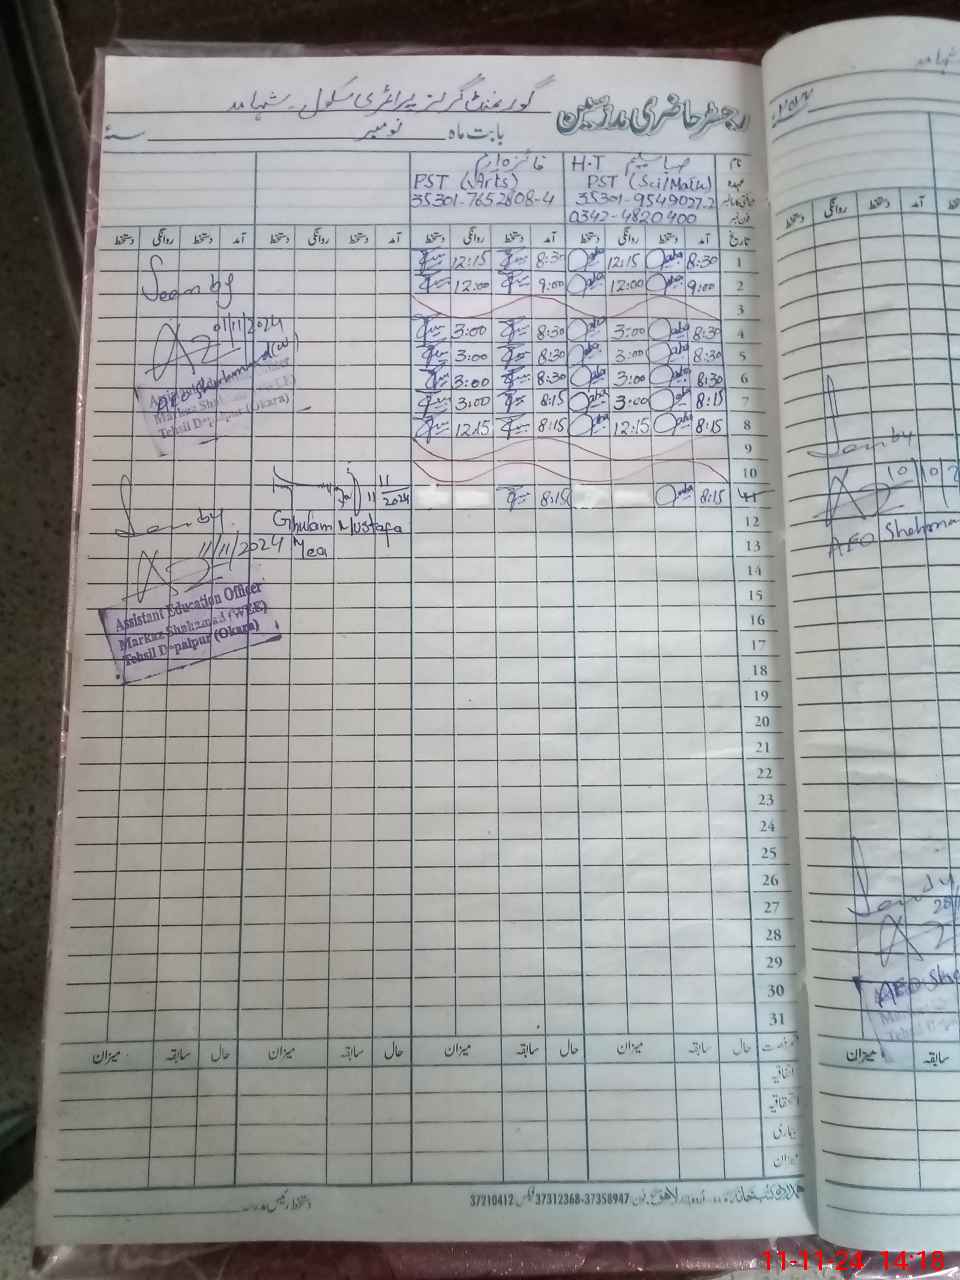 گورنمنٹ گرلز پرائمری سکول
رجسٹر حاضری مدرسین
بابت ماہ نومبر
نام صبا H.T فائزہ
عہدہ PST (Sci/Math) PST (Arts)
35301-9549027-2 35301-7652808-4
0342-4820400
تاریخ آمد دستخط روانگی دستخط آمد دستخط روانگی دستخط آمد دستخط روانگی دستخط آمد دستخط روانگی دستخط
1 8:30 Saba 12:15 Saba 8:30 12:15
2 9:00 Saba 12:00 Saba 9:00 12:00
3
4 8:30 Saba 3:00 Saba 8:30 3:00
5 8:30 Saba 3:00 Saba 8:30 3:00
6 8:30 Saba 3:00 Saba 8:30 3:00
7 8:15 Saba 3:00 Saba 8:15 3:00
8 8:15 Saba 12:15 Saba 8:15 12:15
9
10
11 8:15 Saba 8:15
12
13
14
15
16
17
18
19
20
21
22
23
24
25
26
27
28
29
30
31
Seen by
01/11/2024
Tehsil Depalpur (Okara)
11/11/2024
Ghulam Mustafa
Mea
Seen by
11/11/2024
Assistant Education Officer
Markaz Shahamad (WEE)
Tehsil Depalpur (Okara)
حال سابقہ میزان حال سابقہ میزان حال سابقہ میزان حال سابقہ میزان
اتفاقیہ
بیماری
میزان
37312368-37358947 فیکس 37210412
آمد دستخط روانگی دستخط
Seen by
10/10/2
AEO Shahama
AEO Sha
سابقہ میزان
11-11-24 14:18